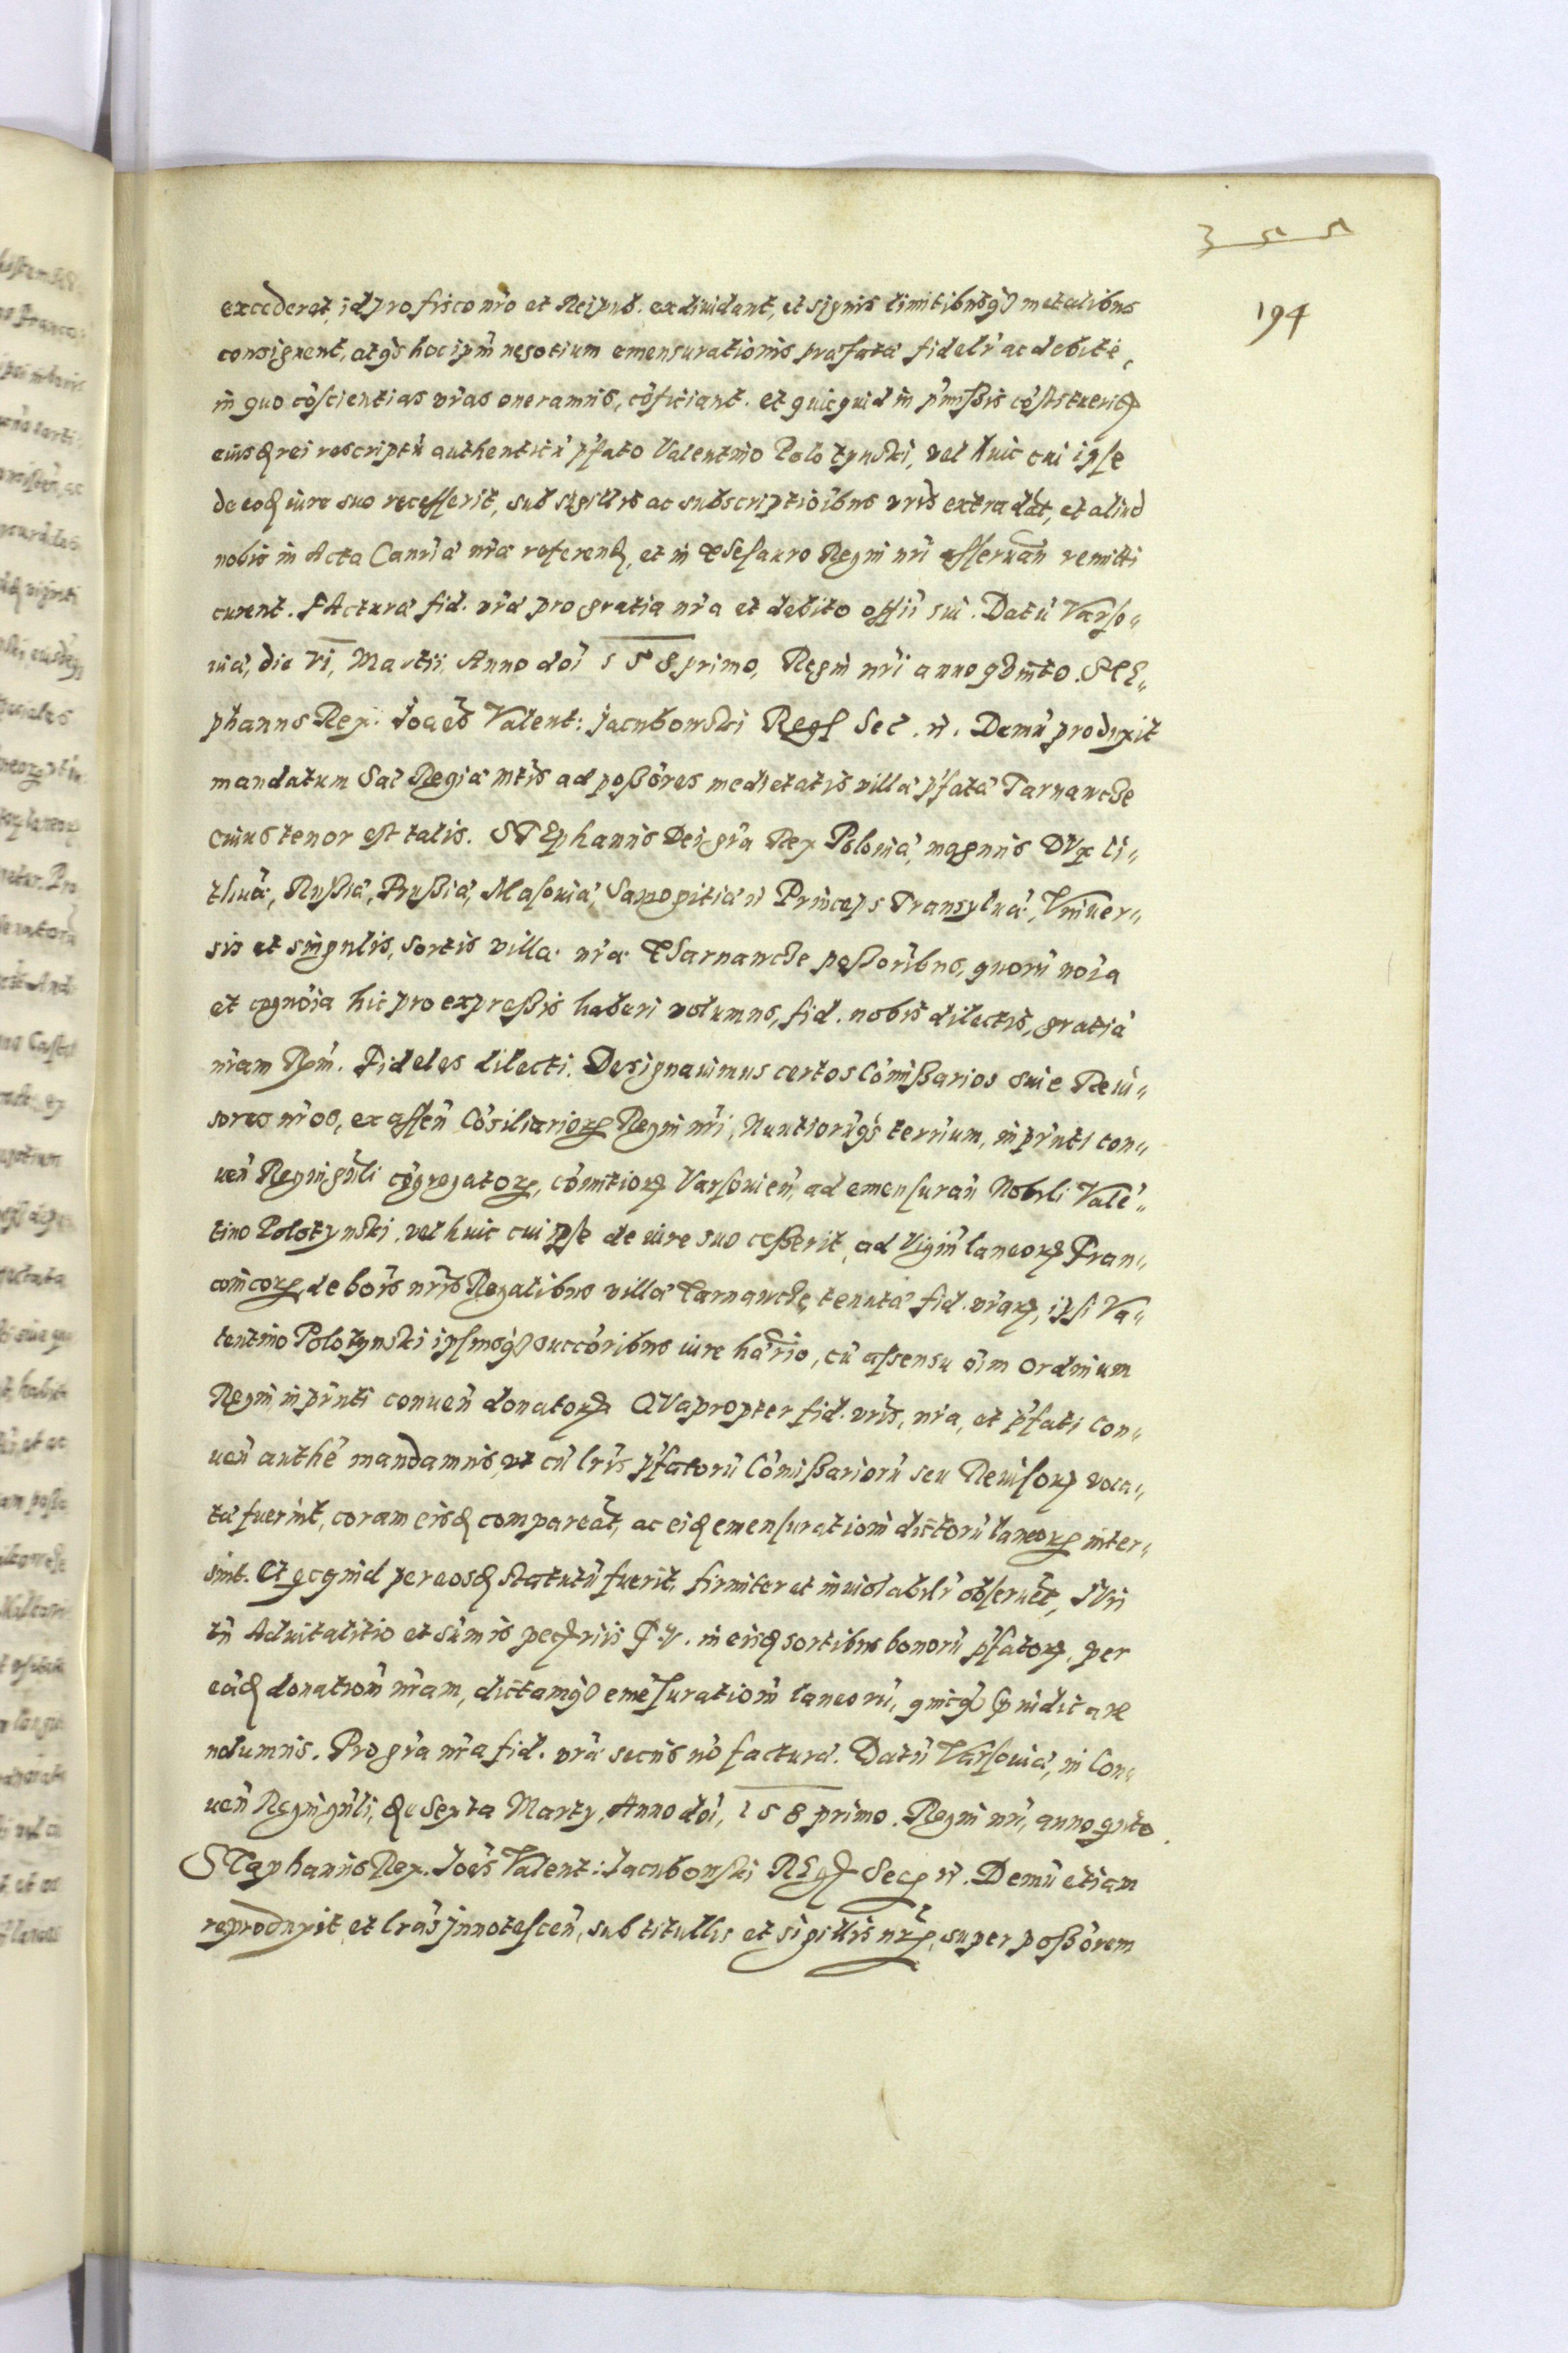 355
194
excederet, id pro fisco nr̃o et Reipub. ex diuidant, et signis limitibusq̃ metalibus
consignent, atq̃ hoc ipm̃ negotium emensurationis præfatæ fidelr̃ ac debite,
in quo cõscientias vr̃as oneramus, cõficiant. et quicquid in p̃missis cõstituerit
eiusd rei rescriptũ authenticũ p̃fato Valentino Polotynski, vel huic cui ipse
de eod iure suo recesserit, sub sigillis ac subscriptiõibus vr̃is extradãt, et aliud
nobis in Acta Canr̃iæ nr̃æ referend, et in Thesauro Regni nr̃i asseruan̄ remitti
curent. FActuræ fid. vr̃æ pro gratia nr̃a et debito offii sui. Datũ Varso-
uiæ, die vi, Martii, Anno doĩ 158primo, Regni nr̃i anno quinto. STE-
phanus Rex. Joaẽs Valent: Jacubowski Regṡ Sec. ñ. Demũ produxit
mandatum Sac̃ Regiæ mt̃is ad possõres medietatis villæ p̃fatæ Tarnawcze
cuius tenor est talis. STEphanus Dei gr̃a Rex Poloniæ, magnus DVx Li-
thuã, Russiæ, Prussiæ, Masouiæ, Samogitiæ ñ Princeps Transyluæ, Vniuer-
sis et singulis, sortis villæ nr̃æ Tharnawcze possõribus, quorũ noĩa
et cognoĩa hic pro expressis haberi volumus, fid. nobis dilectis, gratiã
nr̃am Rm̃. Fideles dilecti. Designauimus certos Cõmissarios siue Reui-
sores nr̃os, ex assen̄ Cõsiliariorum Regni nr̃i, Nuntiorũq̃ terrium, in pr̃nti con-
uen̄ Regni gñli cõgregatorum, cõmitiorum Varsouien̄, ad emensuran̄ Nobili Valẽ-
tino Polotynski, vel huic cui ipse de iure suo cesserit, ad Vigin̄ laneorum Fran-
conicorum, de bonis nr̃is Regalibus villæ Tarnawcze, tenutæ fid. vr̃arum, ipsi Va-
lentino Polotynski ipsiusq̃ succõribus iure hær̃io, cũ assensu oĩm Ordinum
Regni, in pr̃nti conuen̄ donatorum. QVapropter fid. vr̃is, nr̃a, et p̃fati Con-
uen̄ authẽ mandamus, vt cũ lr̃is p̃fatorũ Cõmissariorũ seu Reuisorum voca-
tæ fuerint, coram eisd compareãt, ac eid emensurationi dictorũ laneorum inter-
sint. Et quicquid per eosd statutũ fuerit, firmiter et inuiolabilr̃ obseruẽt, IVri
tñ Aduitalitio et sũmis pecriis F. V. in eisd sortibus bonorũ p̃fatorum, per
eãd donationẽ nr̃am, dictamq̃ emẽsurationẽ laneorũ, quicq̃ p̃iudicare
nolumus. Pro gr̃a nr̃a fid. vr̃æ secus nõ facturæ. Datũ Varsouiæ, in Con-
uen̄ Regni gñli, die Sexta Marty, Anno doĩ, 158primo. Regni nr̃i, anno qnto.
STephanus Rex. Joẽs Valent: Jacubowski REgṡ Sec ñ. Demũ etiam
reproduxit et lr̃as jnnotescen̄, sub titullis et sigillis nr̃is, super possõrem